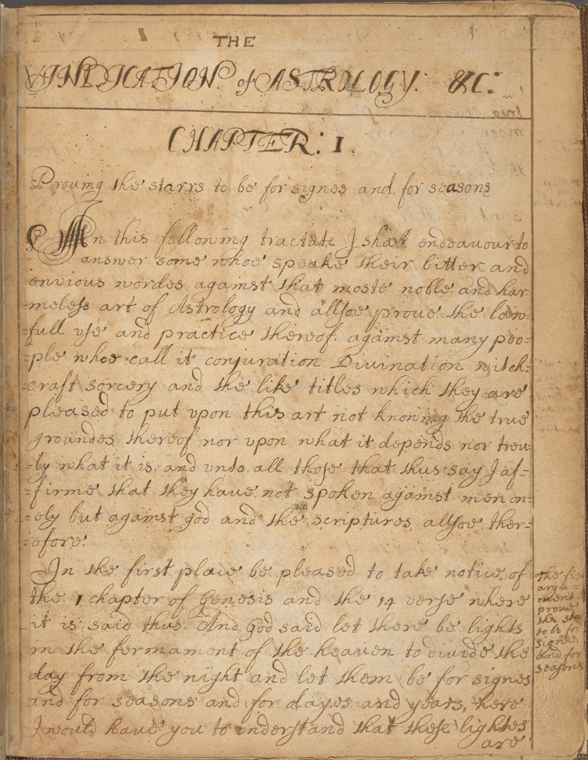 THE
VINDICATION of ASTROLOGY: &C:
CHAPTER: 1.
Proving the starrs to be for signes and for seasons
In this following tractate I shall endeavour to
answer some whoe speake their bitter and
envious wordes against that moste noble and har-
meless art of Astrology and allsoe prove the law-
=full use and practice thereof against many peo=
=ple whoe call it conjuration Divination witch=
=craft sorcery and the like titles which they are
pleased to put upon this art not knowing the true
groundes thereof nor upon what it depends nor treu
=ly what it is, and unto all those that thus say I af=
=firme that they have not spoken against men on=
=ely but against god and the scriptures allsoe ther=
=efore:
In the first place be pleased to take notice of
the 1 chapter of Genesis and the 14 verse where
it is said thus. And God said let there be lights
in the fermament of the heaven to divide the
day from the night and let them be for signes
and for seasons and for dayes and years, here
I would have you to understand that these lightes
are
the
argu
ment
prove
the
to be
signe
and for
seasons